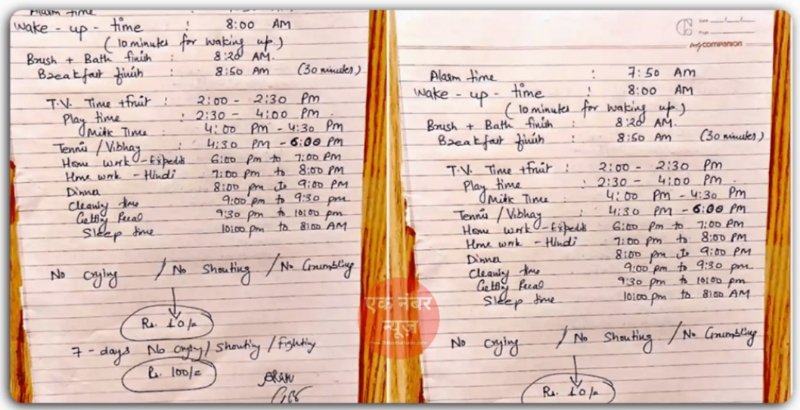 Alarm time 7:50 AM
Wake - up - time : 8:00 AM
(10 minutes for waking up.)
Brush + Bath finish : 8:20 AM.
Breakfast finish : 8:50 AM (30 minutes)
T.V. Time + fruit : 2:00 - 2:30 Pm
Play time : 2:30 - 4:00 Pm
Milk Time : 4:00 PM - 4:30 PM
Tennis / Vibhay : 4:30 PM - 6:00 PM
Home work - : 6:00 Pm to 7:00 PM
Home work - Hindi : 7:00 pm to 8:00 PM
Dinner 8:00 pm to 9:00 PM
Cleaning time 9:00 pm to 9:30 pm
Getting 9:30 pm to 10:00 pm
Sleep time 10:00 pm to 8:00 AM
No Crying / No Shouting / No Grumbling
Rs. 10/=
7 - days No crying / Shouting / fighting
Rs. 100/=
एक नंबर
न्यूज़
Date
Page
mycompanion
Alarm time : 7:50 AM
Wake - up - time : 8:00 AM
(10 minutes for waking up.)
Brush + Bath finish : 8:20 AM.
Breakfast finish : 8:50 AM (30 minutes)
T.V. Time + fruit : 2:00 - 2:30 Pm
Play time : 2:30 - 4:00 Pm
Milk Time : 4:00 PM - 4:30 PM
Tennis / Vibhay : 4:30 PM - 6:00 PM
Home work - : 6:00 Pm to 7:00 PM
Home work - Hindi : 7:00 pm to 8:00 PM
Dinner : 8:00 pm to 9:00 PM
Cleaning time 9:00 pm to 9:30 pm
Getting 9:30 pm to 10:00 pm
Sleep time 10:00 pm to 8:00 AM
No Crying / No Shouting / No Grumbling
Rs. 10/=